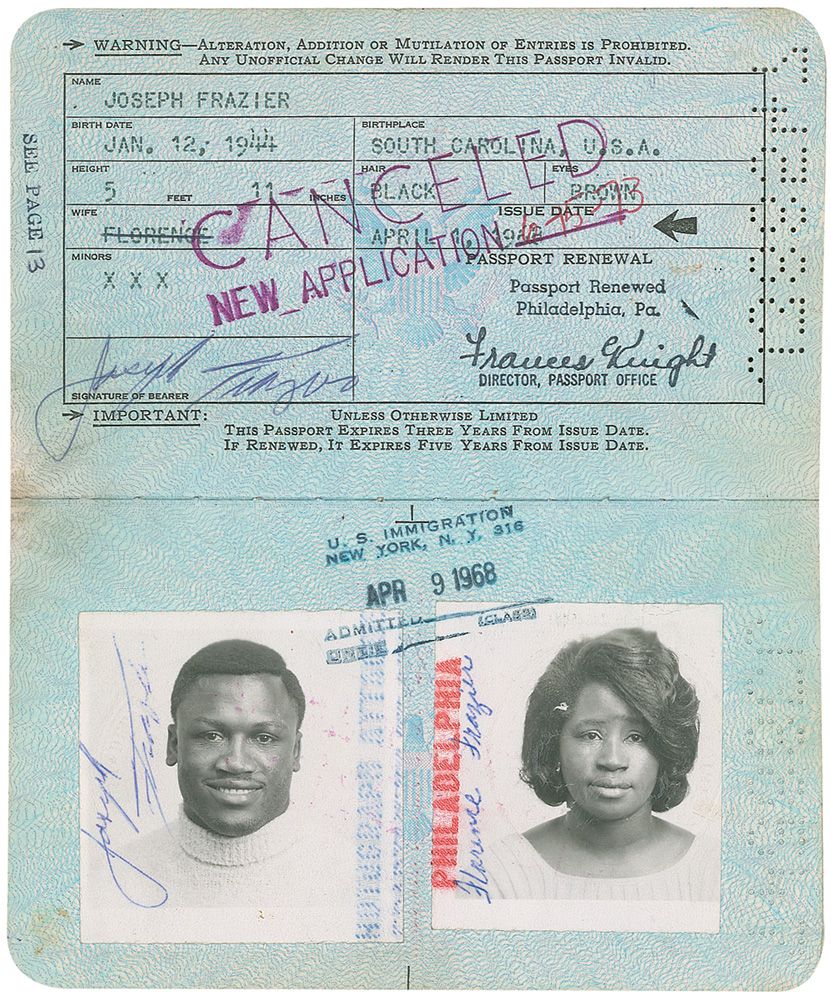 WARNING—ALTERATION, ADDITION OR MUTILATION OF ENTRIES IS PROHIBITED.
ANY UNOFFICIAL CHANGE WILL RENDER THIS PASSPORT INVALID.
NAME
JOSEPH FRAZIER
BIRTH DATE
JAN. 12, 1944
BIRTHPLACE
SOUTH CAROLINA, U.S.A.
HEIGHT
5 FEET 11 INCHES
HAIR
BLACK
EYES
BROWN
WIFE
FLORENCE
ISSUE DATE
APRIL 1, 1968
CANCELED
NEW APPLICATION
MINORS
X X X
PASSPORT RENEWAL
Passport Renewed
Philadelphia, Pa.
Frances Knight
DIRECTOR, PASSPORT OFFICE
Joseph Frazier
SIGNATURE OF BEARER
SEE PAGE 13
IMPORTANT:
UNLESS OTHERWISE LIMITED
THIS PASSPORT EXPIRES THREE YEARS FROM ISSUE DATE.
IF RENEWED, IT EXPIRES FIVE YEARS FROM ISSUE DATE.
U. S. IMMIGRATION
NEW YORK, N. Y. 316
APR 9 1968
ADMITTED
(CLASS)
UNTIL
Joseph Frazier
PHOTOGRAPH ATTACHED
PHILADELPHIA
Florence Frazier